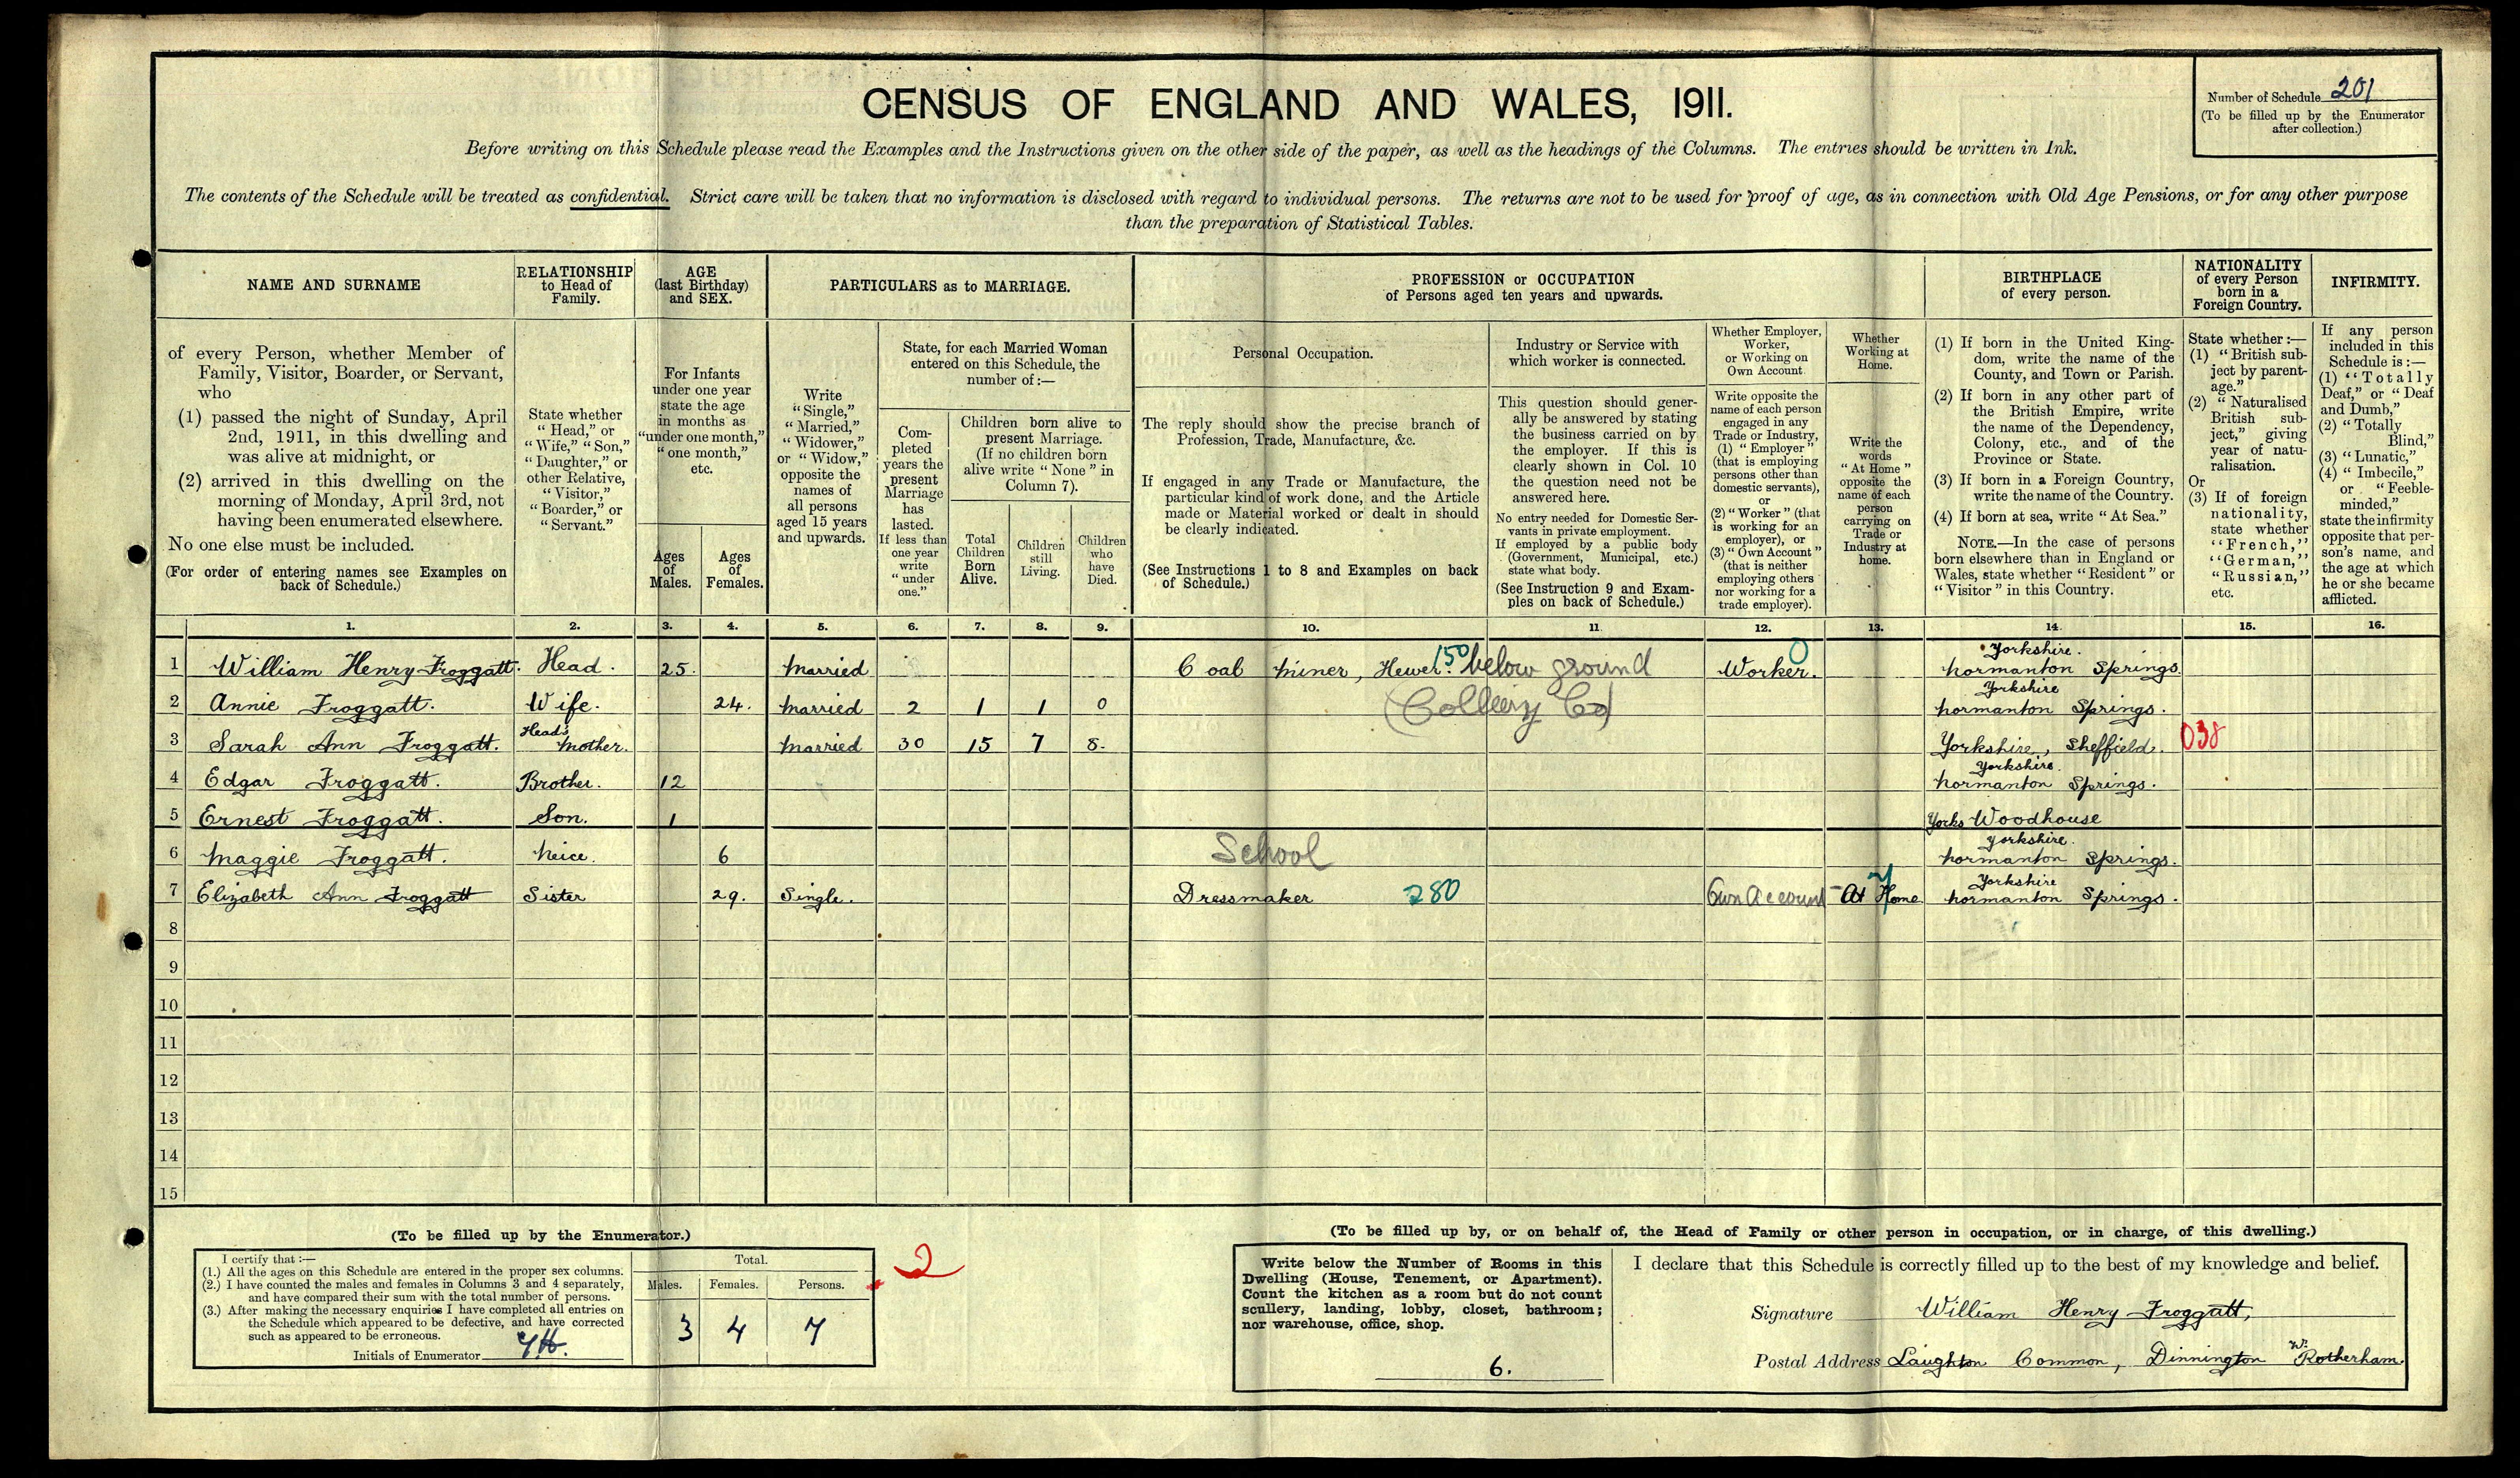 CENSUS OF ENGLAND AND WALES, 1911.
Number of Schedule 201
(To be filled up by the Enumerator
after collection.)
Before writing on this Schedule please read the Examples and the Instructions given on the other side of the paper, as well as the headings of the Columns. The entries should be written in Ink.
The contents of the Schedule will be treated as confidential. Strict care will be taken that no information is disclosed with regard to individual persons. The returns are not to be used for proof of age, as in connection with Old Age Pensions, or for any other purpose
than the preparation of Statistical Tables.
NAME AND SURNAME
of every Person, whether Member of
Family, Visitor, Boarder, or Servant,
who
(1) passed the night of Sunday, April
2nd, 1911, in this dwelling and
was alive at midnight, or
(2) arrived in this dwelling on the
morning of Monday, April 3rd, not
having been enumerated elsewhere.
No one else must be included.
(For order of entering names see Examples on
back of Schedule.)
RELATIONSHIP
to Head of
Family.
State whether
"Head," or
"Wife," "Son,"
"Daughter," or
other Relative,
"Visitor,"
"Boarder," or
"Servant."
AGE
(last Birthday)
and SEX.
For Infants
under one year
state the age
in months as
"under one month,"
"one month,"
etc.
Ages
of
Males.
Ages
of
Females.
PARTICULARS as to MARRIAGE.
Write
"Single,"
"Married,"
"Widower,"
or "Widow,"
opposite the
names of
all persons
aged 15 years
and upwards.
State, for each Married Woman
entered on this Schedule, the
number of:—
Com-
pleted
years the
present
Marriage
has
lasted.
If less than
one year
write
"under
one."
Children born alive to
present Marriage.
(If no children born
alive write "None" in
Column 7).
Total
Children
Born
Alive.
Children
still
Living.
Children
who
have
Died.
PROFESSION or OCCUPATION
of Persons aged ten years and upwards.
Personal Occupation.
The reply should show the precise branch of
Profession, Trade, Manufacture, &c.
If engaged in any Trade or Manufacture, the
particular kind of work done, and the Article
made or Material worked or dealt in should
be clearly indicated.
(See Instructions 1 to 8 and Examples on back
of Schedule.)
Industry or Service with
which worker is connected.
This question should gener-
ally be answered by stating
the business carried on by
the employer. If this is
clearly shown in Col. 10
the question need not be
answered here.
No entry needed for Domestic Ser-
vants in private employment.
If employed by a public body
(Government, Municipal, etc.)
state what body.
(See Instruction 9 and Exam-
ples on back of Schedule.)
Whether Employer,
Worker,
or Working on
Own Account
Write opposite the
name of each person
engaged in any
Trade or Industry,
(1) "Employer"
(that is employing
persons other than
domestic servants),
or
(2) "Worker" (that
is working for an
employer), or
(3) "Own Account"
(that is neither
employing others
nor working for a
trade employer).
Whether
Working at
Home.
Write the
words
"At Home"
opposite the
name of each
person
carrying on
Trade or
Industry at
home.
BIRTHPLACE
of every person.
(1) If born in the United King-
dom, write the name of the
County, and Town or Parish.
(2) If born in any other part of
the British Empire, write
the name of the Dependency,
Colony, etc., and of the
Province or State.
(3) If born in a Foreign Country,
write the name of the Country.
(4) If born at sea, write "At Sea."
NOTE.—In the case of persons
born elsewhere than in England or
Wales, state whether "Resident" or
"Visitor" in this Country.
NATIONALITY
of every Person
born in a
Foreign Country.
State whether:—
(1) "British sub-
ject by parent-
age."
(2) "Naturalised
British sub-
ject," giving
year of natu-
ralisation.
Or
(3) If of foreign
nationality,
state whether
"French,"
"German,"
"Russian,"
etc.
INFIRMITY.
If any person
included in this
Schedule is:—
(1) "Totally
Deaf," or "Deaf
and Dumb,"
(2) "Totally
Blind,"
(3) "Lunatic,"
(4) "Imbecile,"
or "Feeble-
minded,"
state the infirmity
opposite that per-
son's name, and
the age at which
he or she became
afflicted.
1. 2. 3. 4. 5. 6. 7. 8. 9. 10. 11. 12. 13. 14. 15. 16.
1 William Henry Froggatt. Head. 25. Married Coal Miner, Hewer. 150 below ground Worker. 0 Yorkshire. Normanton Springs.
2 Annie Froggatt. Wife. 24. Married 2 1 1 0 (Colliery Co) Yorkshire Normanton Springs.
3 Sarah Ann Froggatt. Head's Mother. Married 30 15 7 8. Yorkshire, Sheffield. 038
4 Edgar Froggatt. Brother. 12 Yorkshire. Normanton Springs.
5 Ernest Froggatt. Son. 1 Yorks Woodhouse
6 Maggie Froggatt. Neice. 6 School Yorkshire. Normanton Springs.
7 Elizabeth Ann Froggatt Sister 29. Single. Dressmaker 280 Own Account – At Home Yorkshire Normanton Springs.
8
9
10
11
12
13
14
15
(To be filled up by the Enumerator.)
I certify that:—
(1.) All the ages on this Schedule are entered in the proper sex columns.
(2.) I have counted the males and females in Columns 3 and 4 separately,
and have compared their sum with the total number of persons.
(3.) After making the necessary enquiries I have completed all entries on
the Schedule which appeared to be defective, and have corrected
such as appeared to be erroneous.
Initials of Enumerator
Total.
Males. Females. Persons.
3 4 7
2
(To be filled up by, or on behalf of, the Head of Family or other person in occupation, or in charge, of this dwelling.)
Write below the Number of Rooms in this
Dwelling (House, Tenement, or Apartment).
Count the kitchen as a room but do not count
scullery, landing, lobby, closet, bathroom;
nor warehouse, office, shop.
6.
I declare that this Schedule is correctly filled up to the best of my knowledge and belief.
Signature William Henry Froggatt,
Postal Address Laughton Common, Dinnington Nr. Rotherham.